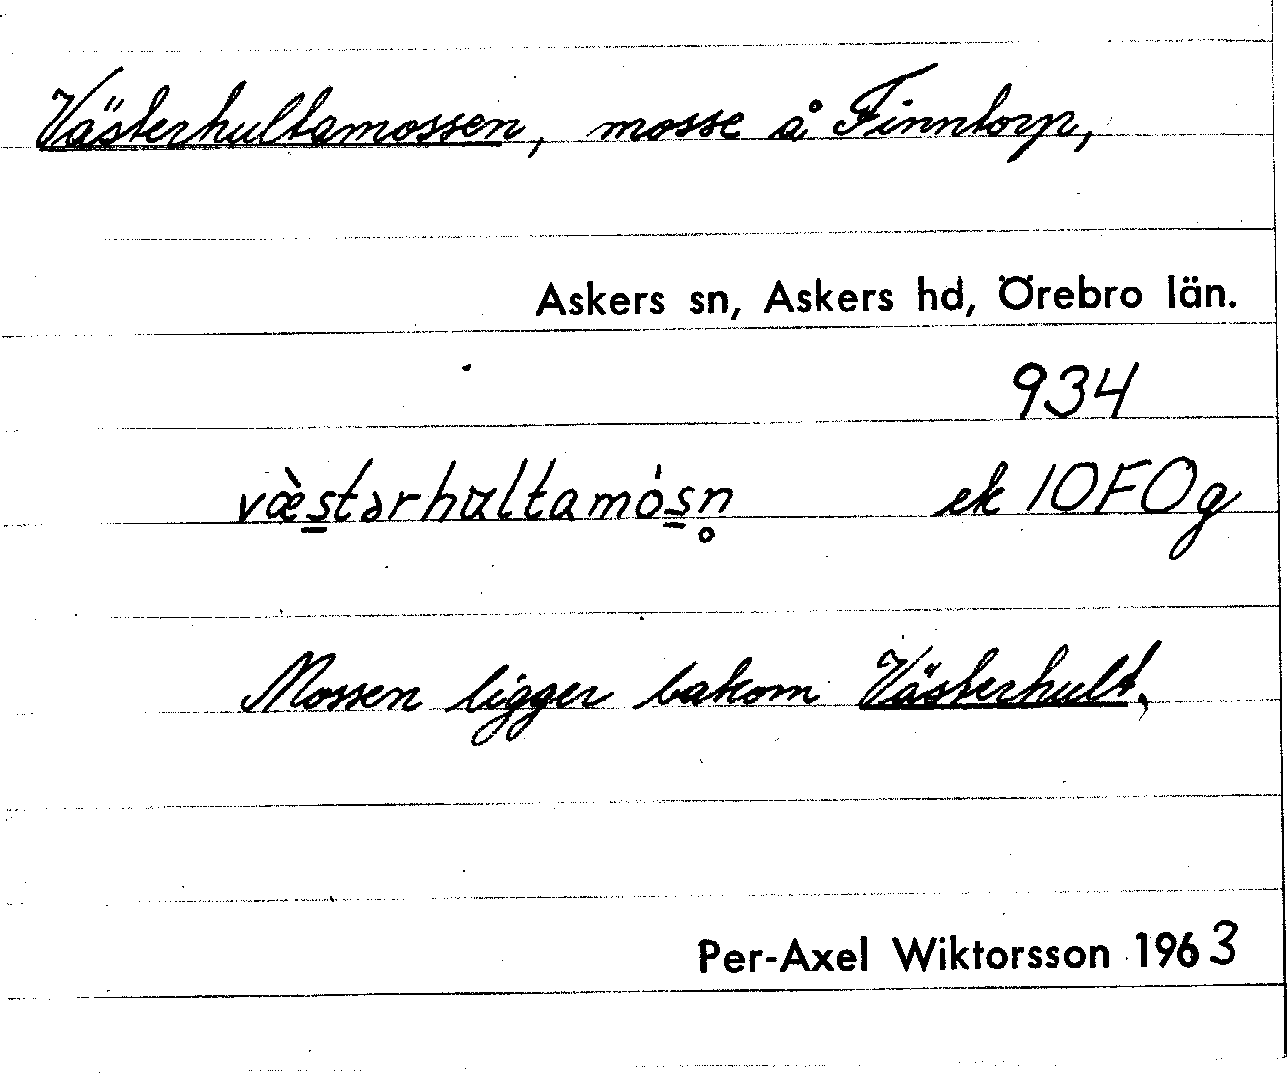 Västerhultamossen, mosse å Finntorp,
Askers sn, Askers hd, Örebro län.
934
væ̀s̲tərhultamósn̥ ek 10FOg
Mossen ligger bakom Västerhult.
Per-Axel Wiktorsson 1963